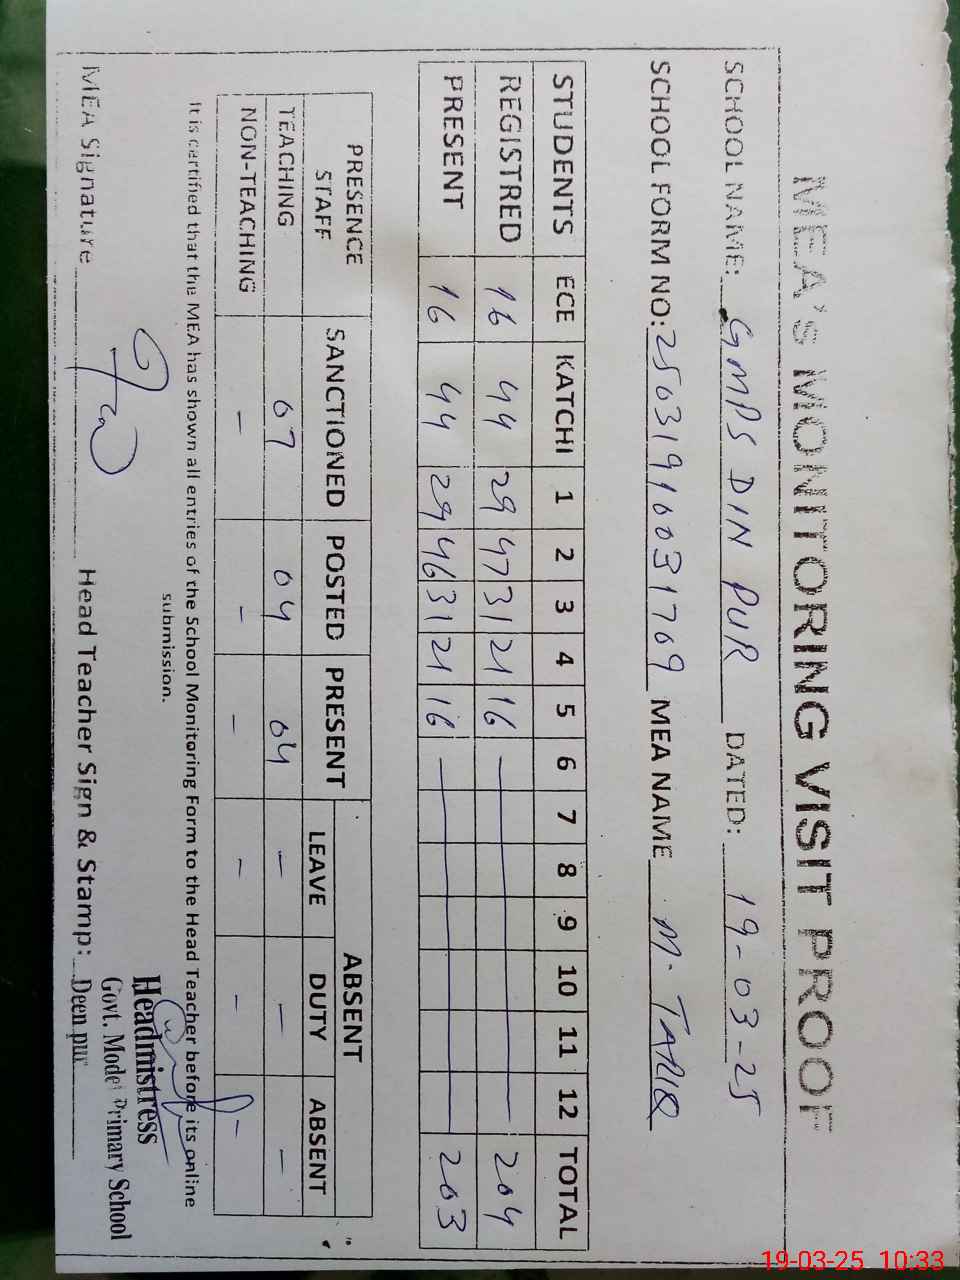 MEA's MONITORING VISIT PROOF
SCHOOL NAME: GMPS DIN PUR DATED: 19-03-25
SCHOOL FORM NO: 25031910031709 MEA NAME M. TARIQ
STUDENTS ECE KATCHI 1 2 3 4 5 6 7 8 9 10 11 12 TOTAL
REGISTRED 16 44 29 47 31 21 16 204
PRESENT 16 44 29 46 31 21 16 203
PRESENCE STAFF SANCTIONED POSTED PRESENT ABSENT
LEAVE DUTY ABSENT
TEACHING 07 04 04 - - -
NON-TEACHING - - - - - -
It is certified that the MEA has shown all entries of the School Monitoring Form to the Head Teacher before its online
submission.
Headmistress
MEA Signature Head Teacher Sign & Stamp: Govt. Model Primary School
Deen pur
19-03-25 10:33